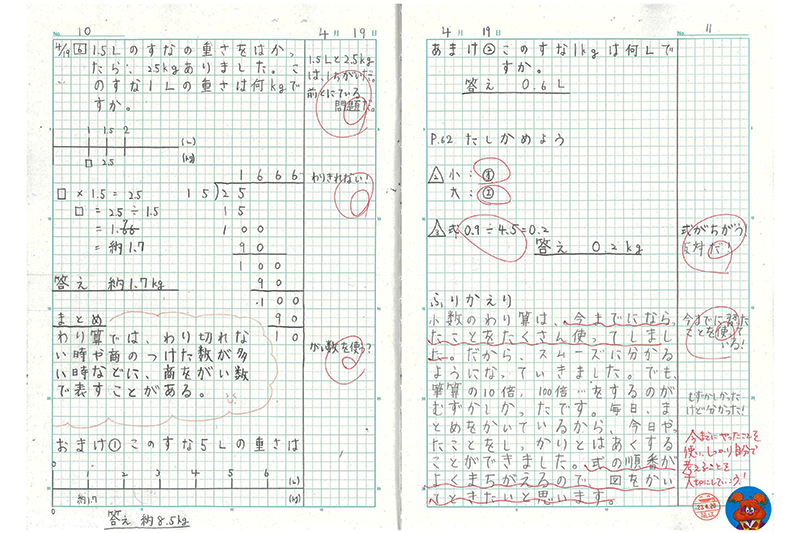 No. 10
4月 19日
4/19 6 1.5Lのすなの重さをはかっ
たら、2.5kgありました。こ
のすな1Lの重さは何kgで
すか。
1.5Lと2.5kg
は、ちがいだ。
前とにている
問題だ。
1 1.5 2
(L)
□ 2.5
(kg)
□ × 1.5 = 2.5
□ = 2.5 ÷ 1.5
= 1.66
= 約1.7
1666
15)25
15
100
90
100
90
100
90
10
わりきれない!
答え 約1.7kg
まとめ
わり算では、わり切れな
い時や商のけた数が多
い時などに、商をがい数
で表すことがある。
がい数を使う?
おまけ① このすな5Lの重さは
0 1 2 3 4 5 6 (L)
約1.7 (kg)
答え 約8.5kg
4月 19日
11
おまけ② このすな1kgは何Lで
すか。
答え 0.6L
P.62 たしかめよう
2 小:
大:
3 式 0.9÷4.5=0.2
答え 0.2kg
式がちがう!
反対だ!
ふりかえり
小数のわり算は、今までになら
ったことをたくさん使ってしまし
た。だから、スムーズに分かる
ようになっていきました。でも、
筆算の10倍、100倍…をするのが
むずかしかったです。毎日、ま
とめをかいているから、今日やっ
たことをしっかりとはあくする
ことができました。式の順番が
よくまちがえるので、図をかい
てときたいと思います。
今までに習た
ことを使って
いる!
むずかしかった
けど分かった!
今までにやったことを
使い、しっかり自分で
考えることを
大切にしていこう!